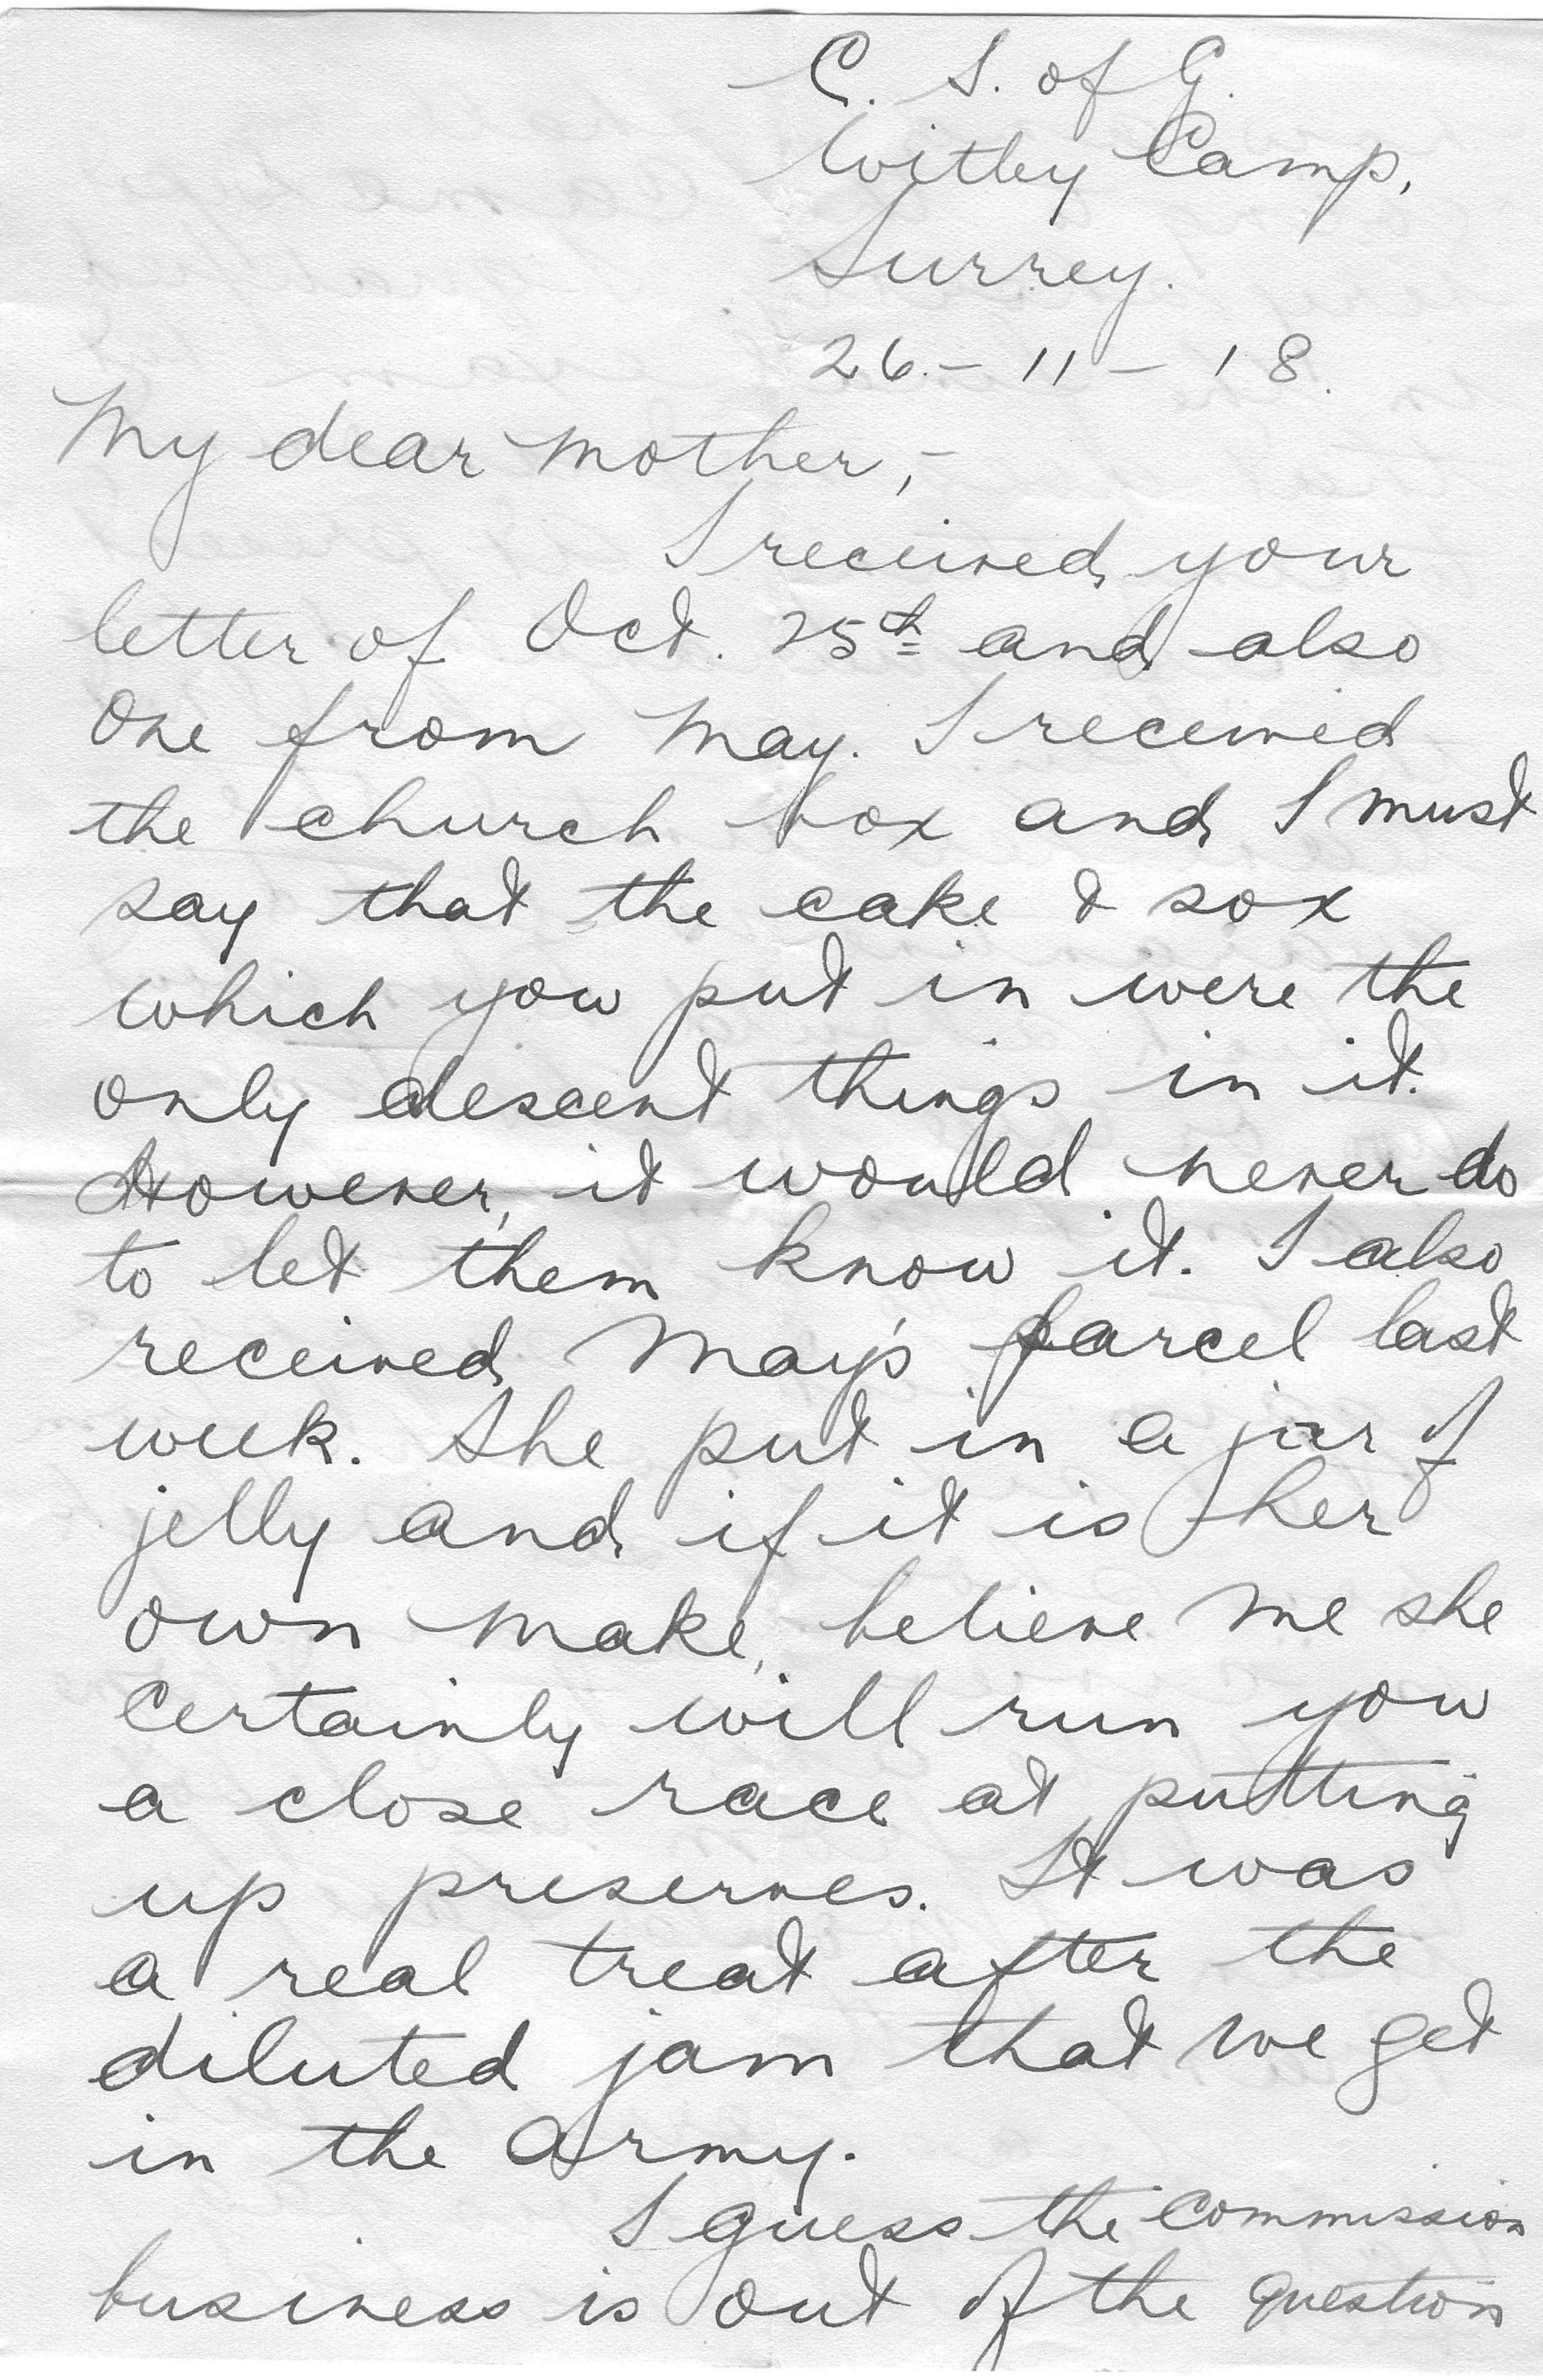 C. S. of G.
Witley Camp,
Surrey.
26.- 11 - 18.
My dear Mother,-
I received your
letter of Oct. 25th and also
one from May. I received
the church box and I must
say that the cake & sox
which you put in were the
only descent things in it.
However, it would never do
to let them know it. I also
received May's parcel last
week. She put in a jar of
jelly and if it is her
own make, believe me she
certainly will run you
a close race at putting
up preserves. It was
a real treat after the
diluted jam that we get
in the army.
I guess the commission
business is out of the question